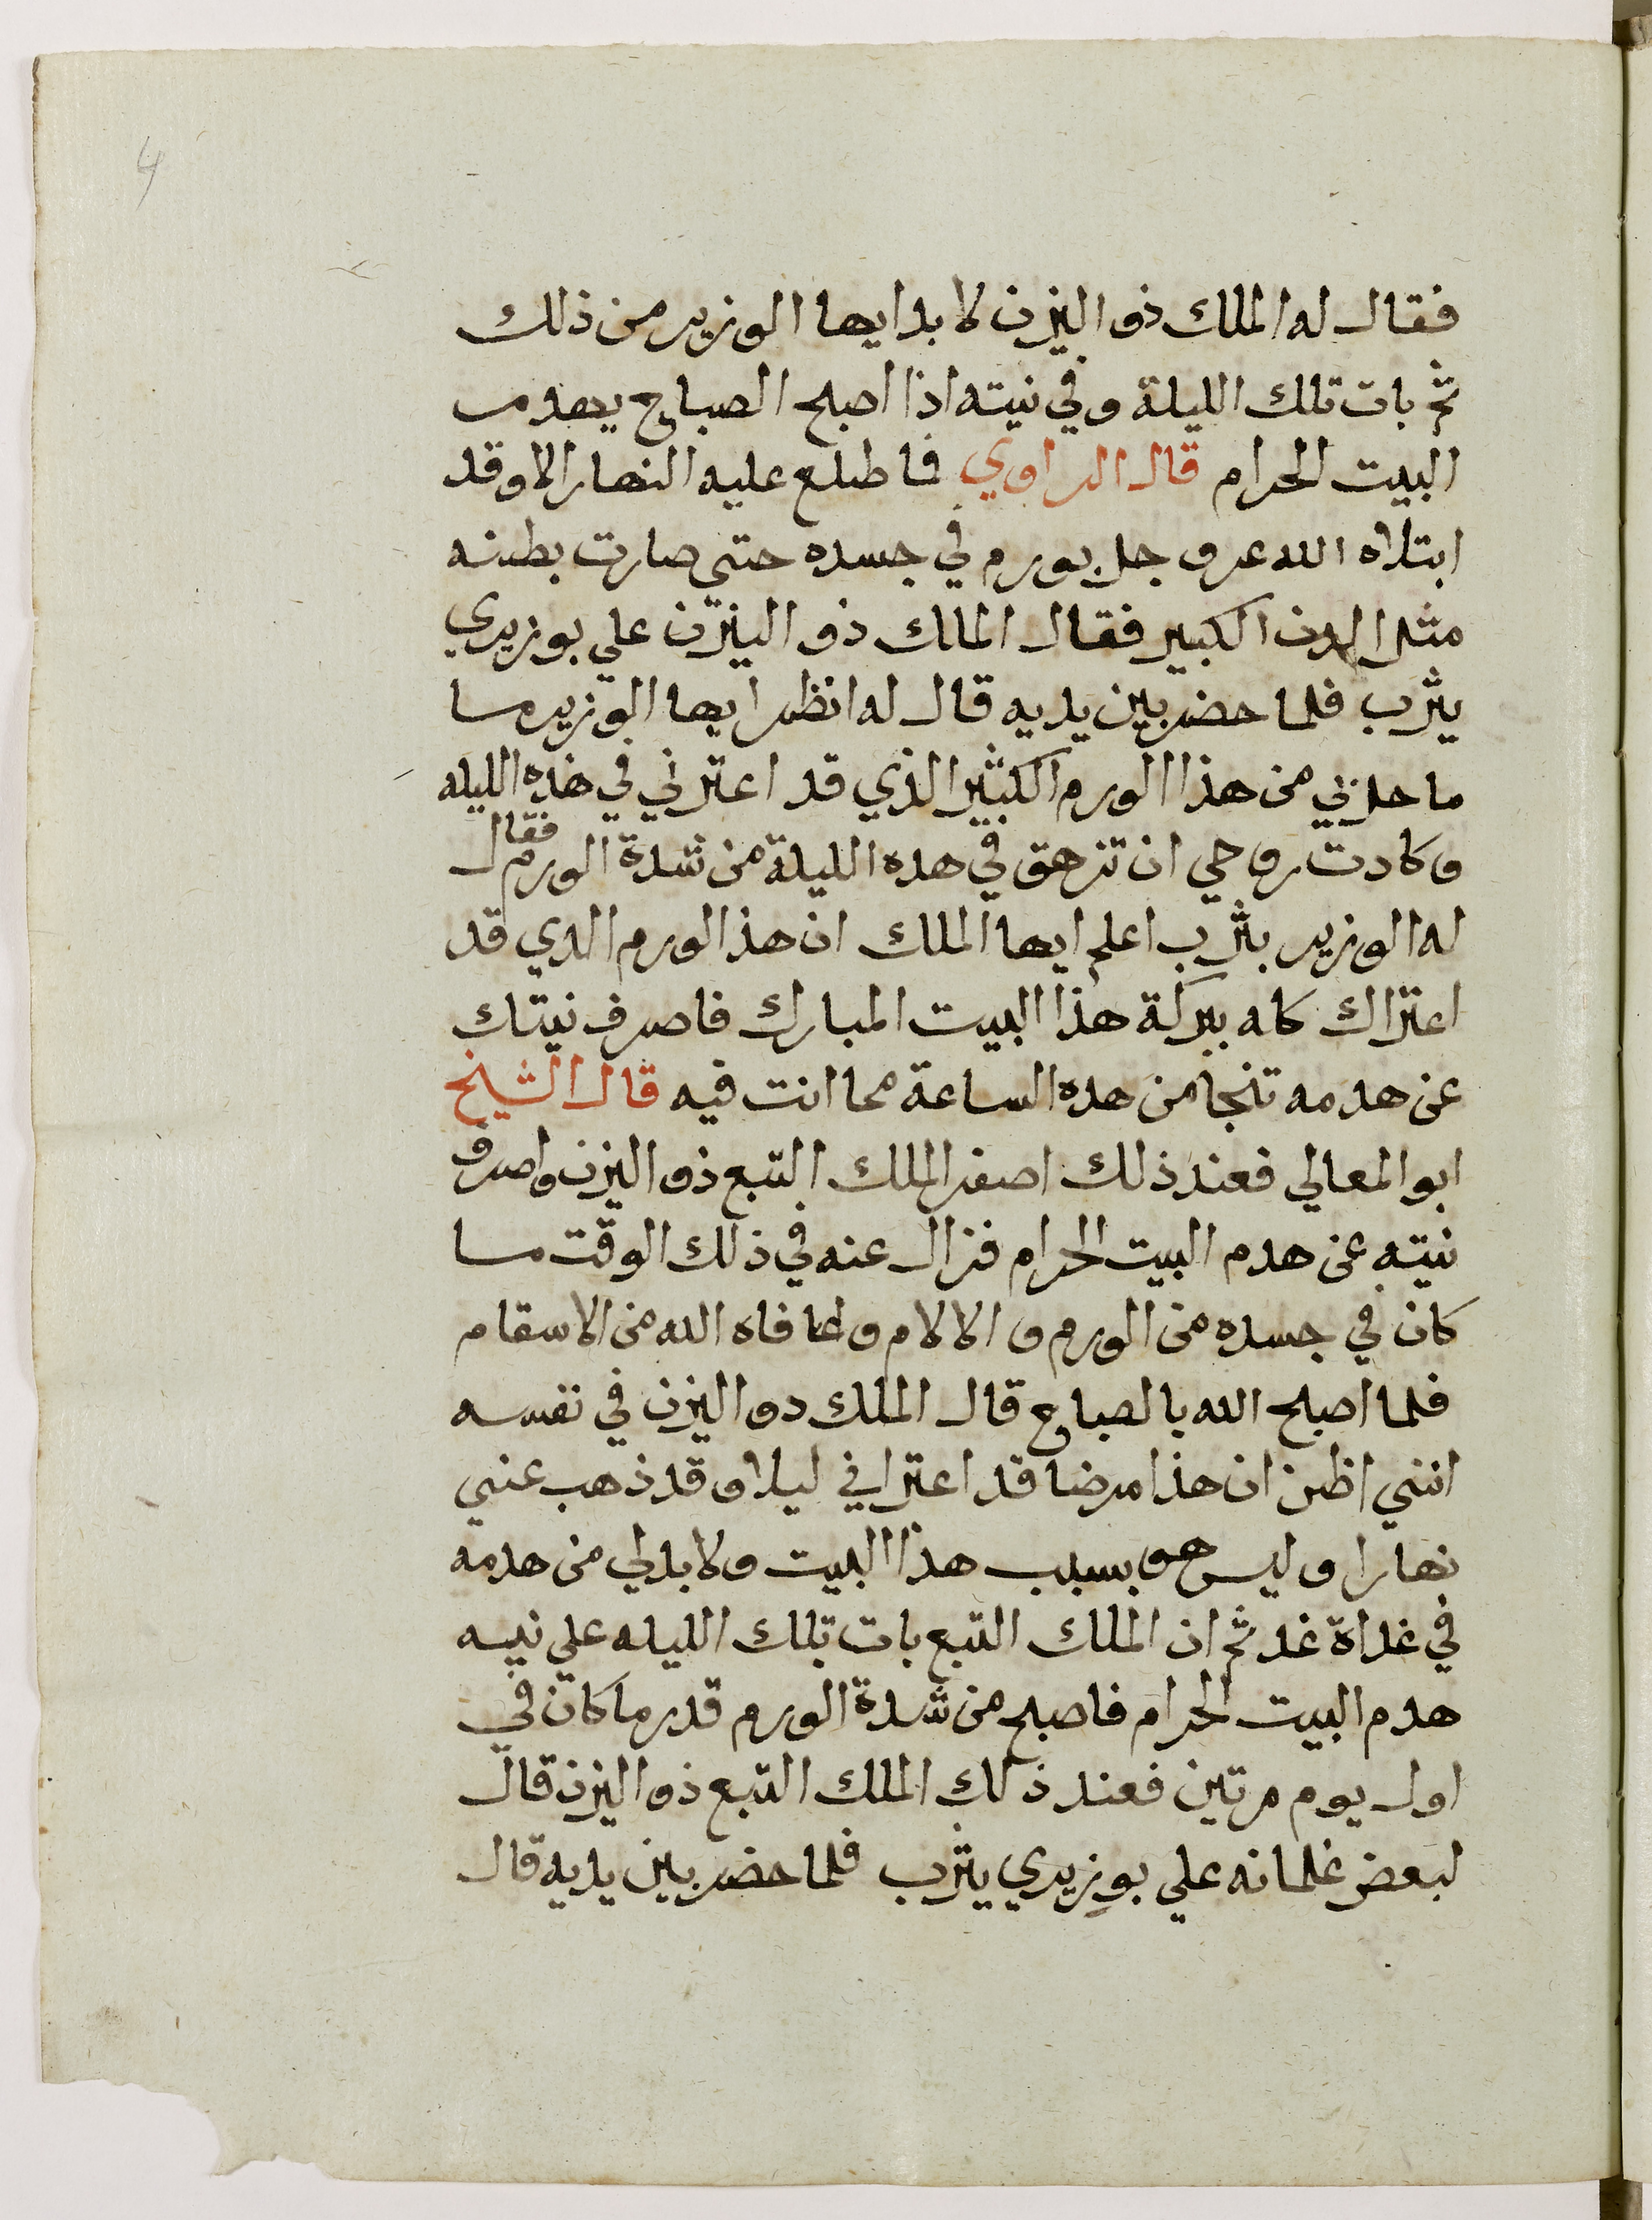 4
فقال له الملك ذو اليزن لا بد ايها الوزير من ذلك
ثم بات تلك الليلة وفي نيته اذا اصبح الصباح يهدم
البيت الحرام قال الراوي فما طلع عليه النهار الا وقد
ابتلاه الله عز وجل بورم في جسده حتي صارت بطنه
مثل الدن الكبير فقال الملك ذو اليزن علي بوزيري
يثرب فلما حضر بين يديه قال له انظر ايها الوزير ما
ما حل بي من هذا الورم الكثير الذي قد اعترني في هذه الليله
وكادت روحي ان تزهق في هده الليلة من شدة الورم فقال
له الوزير يثرب اعلم ايها الملك ان هذ الورم الدي قد
اعتراك كله ببركة هذا البيت المبارك فاصرف نيتك
عن هدمه تنجا من هده الساعة مما انت فيه قال الشيخ
ابو المعالي فعند ذلك اصفر الملك التبع ذو اليزن واصرف
نيته عن هدم البيت الحرام فزال عنه في ذلك الوقت ما
كان في جسده من الورم و الالام و عافاه الله من الاسقام
فلما اصبح الله بالصباح قال الملك دو اليزن في نفسه
انني اظن ان هذا مرضا قد اعتراني ليلا وقد ذهب عني
نهارا وليس هو بسبب هذا البيت ولا بد لي من هدمه
في غداة غد ثم ان الملك التبع بات تلك الليله علي نيه
هدم البيت الحرام فاصبح من شدة الورم قدر ما كان في
اول يوم مرتين فعند ذلك الملك التبع ذو اليزن قال
لبعض غلمانه علي بوزيري يثرب فلما حضر بين يديه قال